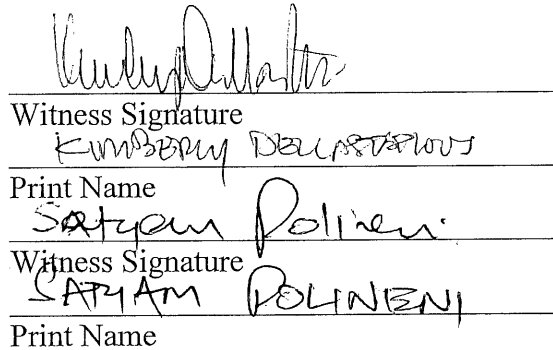 Witness Signature
KIMBERLY
Print Name
Satyam Polineni
Witness Signature
SATYAM POLINENI
Print Name